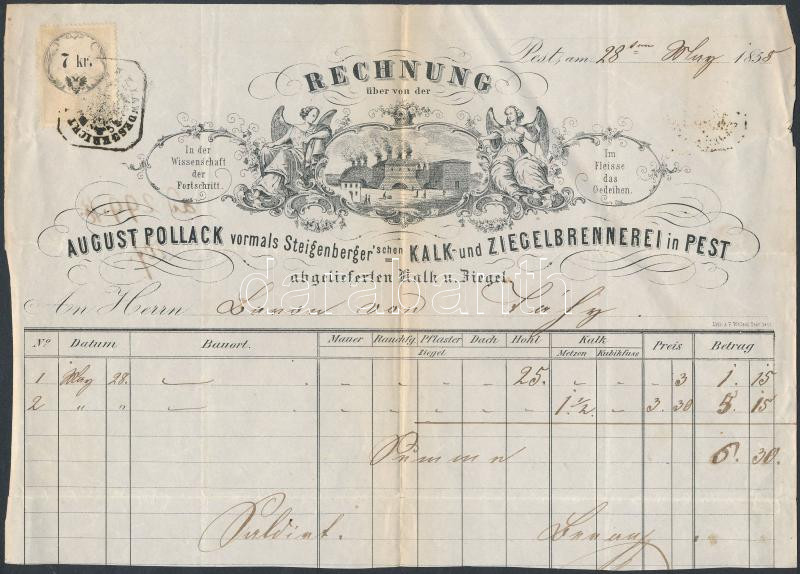 7 kr.
LANDESGERICHT
Pest, am 28ten May 1858
RECHNUNG
über von der
In der
Wissenschaft
der
Fortschritt.
Im
Fleisse
das
Gedeihen.
AUGUST POLLACK vormals Steigenberger'schen KALK- und ZIEGELBRENNEREI in PEST
abgelieferten Kalk u. Ziegel
An Herrn von
No Datum Bauort. Mauer Rauchfg. Pflaster Dach Hohl Kalk Preis Betrag
Ziegel Metzen Kubikfuss
1 May 28. 25. 3 1. 15
2 " " 1 1/2 3. 30 5. 15
Summe 6. 30
Saldirt.
darabanth